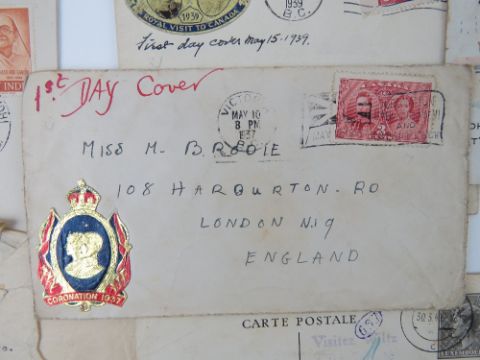 ROYAL VISIT TO CANADA
1939
1939
B.C.
First day cover may 15-1939.
INDI
1st DAY Cover
VICTORIA
MAY 10
8 PM
1937
B.C.
3
MISS M. BRODIE
108 HARBURTON. RD
LONDON N.19
ENGLAND
CORONATION 1937
CARTE POSTALE
Visitez
LUXEMBOURG